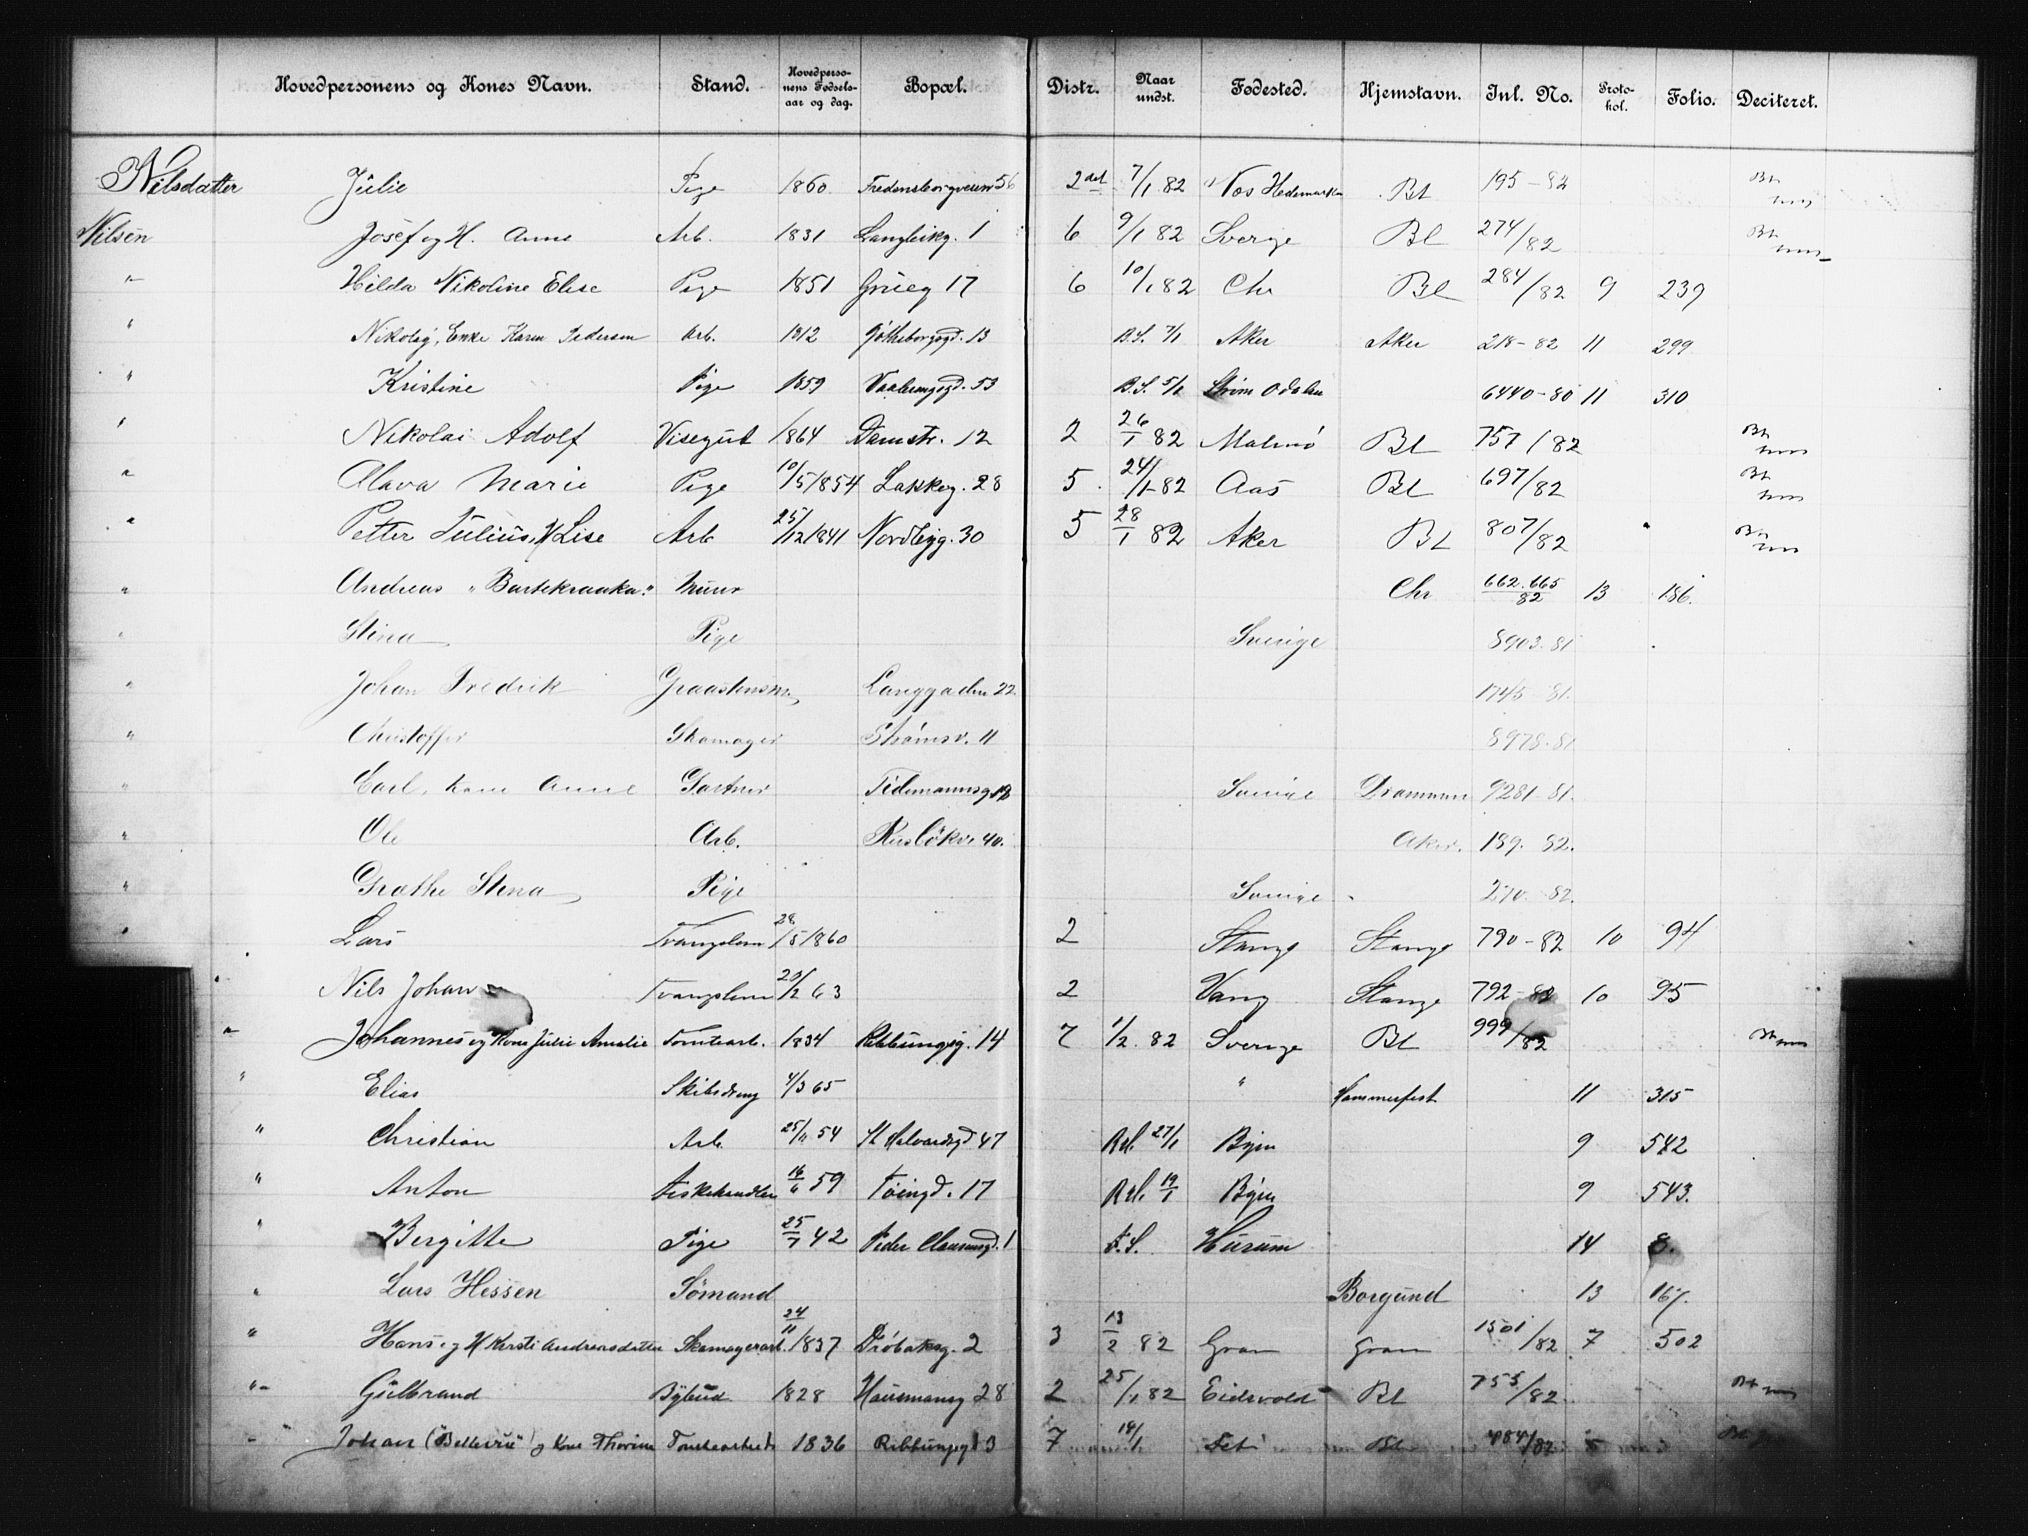 Hovedpersonens og Kones Navn. Stand. Hovedperso-nens Fødsels-aar og dag. Bopæl. Distr. Naar undst. Fødested. Hjemstavn. Inl. No. Proto-kol. Folio. Deciteret.
Nilsdatter Julie Pige 1860 56 2det 7/1 82 Bt 195-82 Bt
Nilsen Josef og H. Anne Arb. 1831 Langleikg. 1 6 9/1 82 Sverge Bl 274/82 Bt
" Hilda Nikoline Elise Pige 1851 Grüeg 17 6 10/1 82 Chr Bl 284/82 9 239
" Nikolaj, Enke Karen Pedersen Arb. 1812 Gøtheborggd. 13 B.S. 7/1 Aker Aker 218-82 11 299
" Kristine Pige 1859 Vaalerenggd. 53 B.S. 5/1 Odalen 6440-80 11 310
" Nikolai Adolf Visegut 1864 Damstr. 12 2 26/1 82 Malmø Bl 757/82 Bt
" Olava Marie Pige 10/5 1854 Lakkeg. 28 5. 24/1-82 Aas Bl 697/82 Bt
" Petter Julius, H Lise Arb 25/12 1841 Nordbyg. 30 5 28/1 82 Aker Bl 807/82 Bt
" Andreas "Bartekraaka" Murer Chr 662.665/82 13 186.
" Stina Pige Sverige 8903-81
" Johan Fredrik Graastensm. Langgaden 22 1745-81.
" Christoffer Skomager Strømsv. 11 8978-81
" Carl, Kone Anne Gartner Tidemannsg 12 Sverige Drammen 9281-81.
" Ole Arb. Rusløkv. 40. Aker. 189. 82.
" Grethe Stena Pige Sverige 270-82.
" Lars Tvangslem 28/5 1860 2 Stange Stange 790-82 10 94
Nils Johan Tvangslem 20/2 63 2 Vang Stange 792-82 10 95
" Johannes og Kone Julie Amalie Tomtearb. 1834 Ribbungsg. 14 7 1/2. 82 Sverige Bl 999/82 Bt
" Elias Skibsdreng 4/3 65 " Hammerfest 11 315
" Christian Arb. 25/11 54 St Halvardsgd 47 27/1 Byen 9 542
" Anton Fiskehandler 16/6 59 Tøiengd. 17 19/1 Byen 9 543.
" Bergitte Pige 25/7 42 Peder Clausensgd. 1 F.S. Hurum 14 8.
" Lars Hessen Sømand Borgund 13 167.
" Hans og H Kirsti Andreasdatter Skomagerarb. 24/11 1837 Drøbaksg. 2 3 13/2 82 Gran Gran 1501/82 7 502
" Gulbrand Bybud 1828 Hausmansg 28 2 25/1 82 Eidsvold Bl 755/82 Bt
" Johan ("Bellevue") og Kone Thorine Tomtearbeid 1836 Ribbungsgd 3 7 18/1 Fet Bl 484/82 Bt